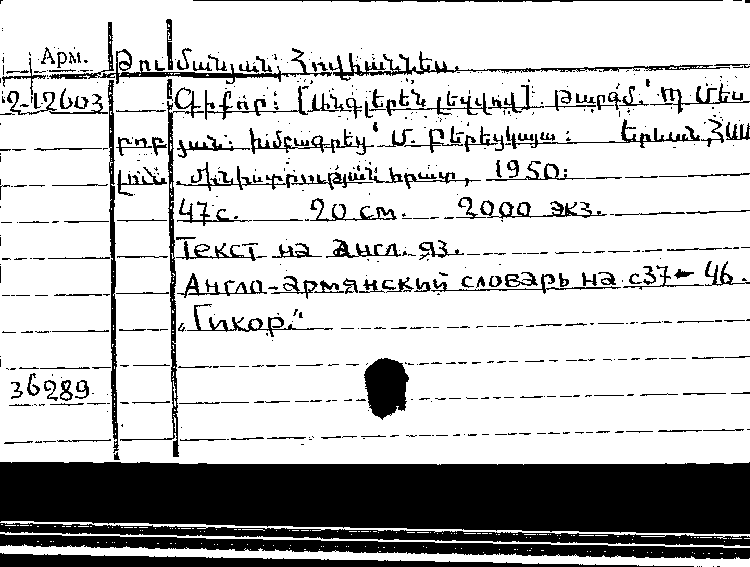 Арм. Թումանյան, Հովհաննես.
2-12603 Գիքոր: [Անգլերեն լեզվով]. Թարգմ.՝ Մ Մես
րոբյան: խմբագրեց՝ Մ. Երևան, ՀԱՍ
լուս. մինիստրության հրատ, 1950:
47 с. 20 см. 2000 экз.
Текст на англ. яз.
Англо-армянский словарь на с37-46.
"Гикор."
36289